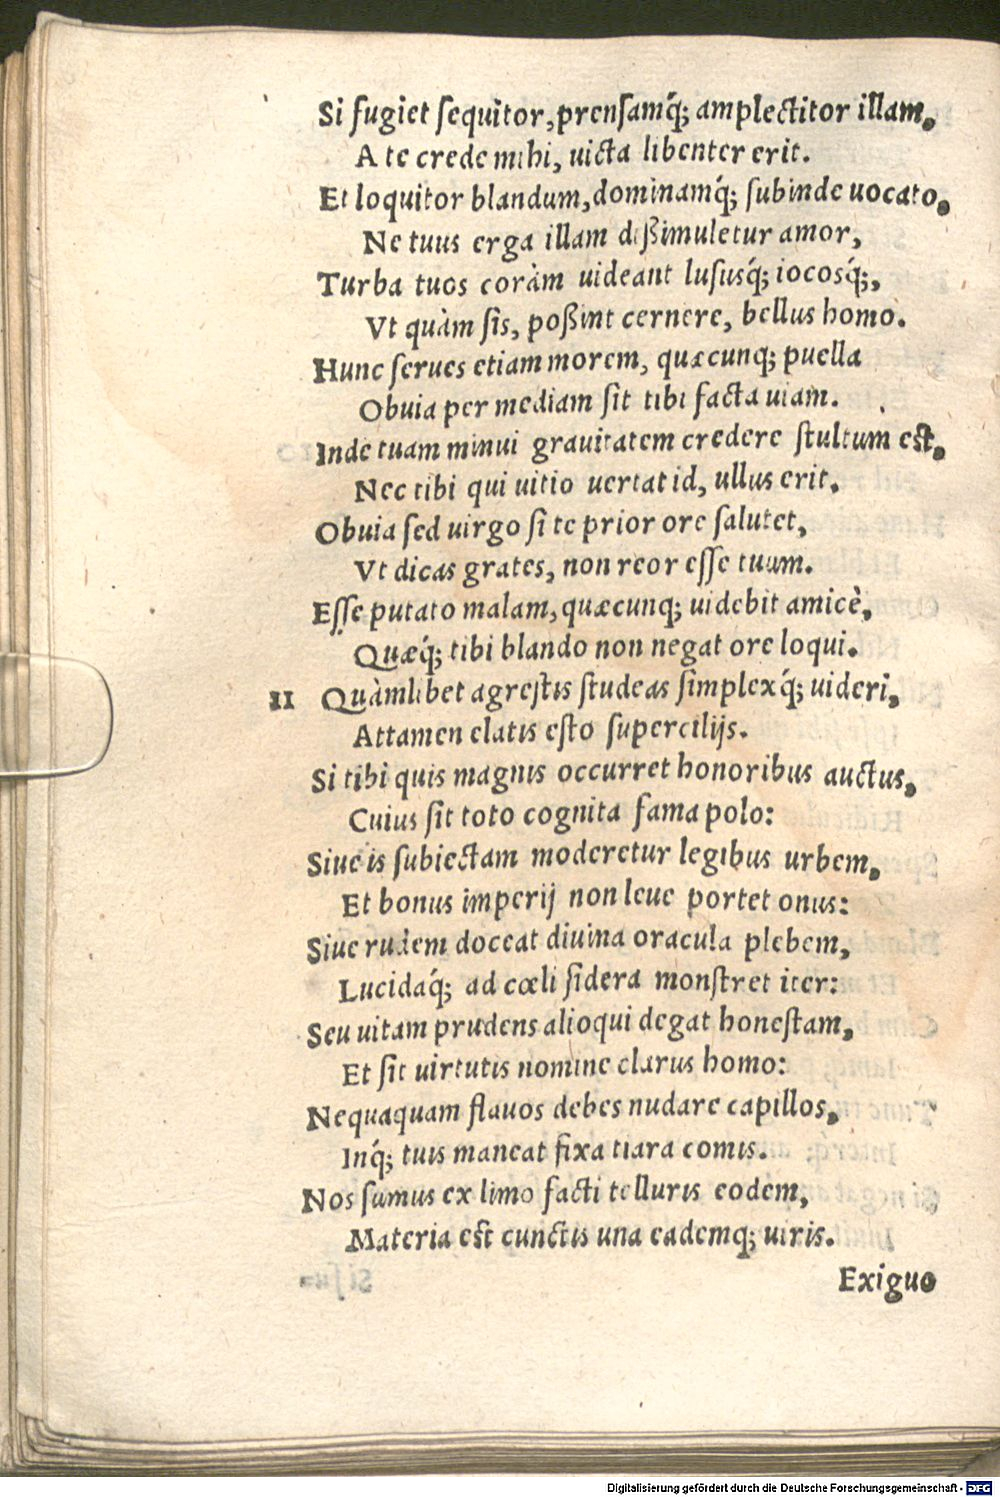 Si fugiet ſequitor, prenſamq́; amplectitor illam,
A te crede mihi, uicta libenter erit.
Et loquitor blandum, dominamq́; ſubinde uocato,
Ne tuus erga illam dißimuletur amor,
Turba tuos coràm uideant luſusq́; iocosq́;,
Vt quàm ſis, poßint cernere, bellus homo.
Hunc ſerues etiam morem, quæcunq; puella
Obuia per mediam ſit tibi facta uiam.
Inde tuam minui grauitatem credere ſtultum eſt,
Nec tibi qui uitio uertat id, ullus erit.
Obuia ſed uirgo ſi te prior ore ſalutet,
Vt dicas grates, non reor eſſe tuum.
Eſſe putato malam, quæcunq; uidebit amicè,
Quæq́; tibi blando non negat ore loqui.
11 Quàmlibet agreſtis ſtudeas ſimplexq́; uideri,
Attamen elatis eſto ſupercilijs.
Si tibi quis magnis occurret honoribus auctus,
Cuius ſit toto cognita fama polo:
Siue is ſubiectam moderetur legibus urbem,
Et bonus imperij non leue portet onus:
Siue rudem doceat diuina oracula plebem,
Lucidaq́; ad cœli ſidera monſtret iter:
Seu uitam prudens alioqui degat honeſtam,
Et ſit uirtutis nomine clarus homo:
Nequaquam flauos debes nudare capillos,
Inq́; tuis maneat fixa tiara comis.
Nos ſumus ex limo facti telluris eodem,
Materia eſt cunctis una eademq; uiris.
Exiguo
Digitalisierung gefördert durch die Deutsche Forschungsgemeinschaft - DFG